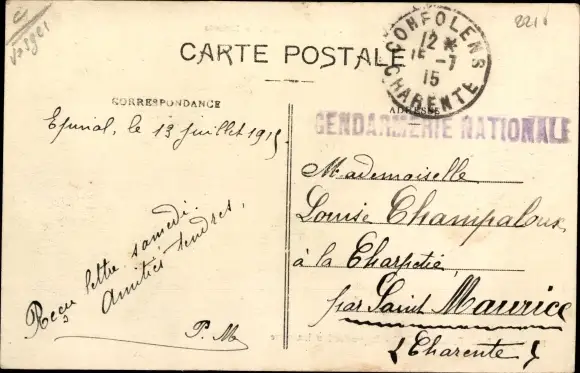 c
Vosges
221
CARTE POSTALE
CONFOLENS
12 *
15 -7
15
CHARENTE
CORRESPONDANCE
ADRESSE
GENDARMERIE NATIONALE
Epinal, le 13 juillet 1915
Reçu lettre samedi.
Amitiés tendres,
P. M
Mademoiselle
Louise Champaloux
à la Charpetie,
par Saint Maurice
(Charente)